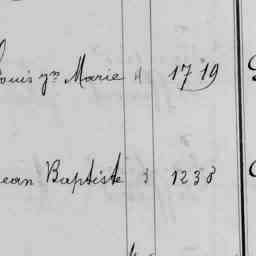 Louis Jn Marie 4 1719
Jean Baptiste 3 1238